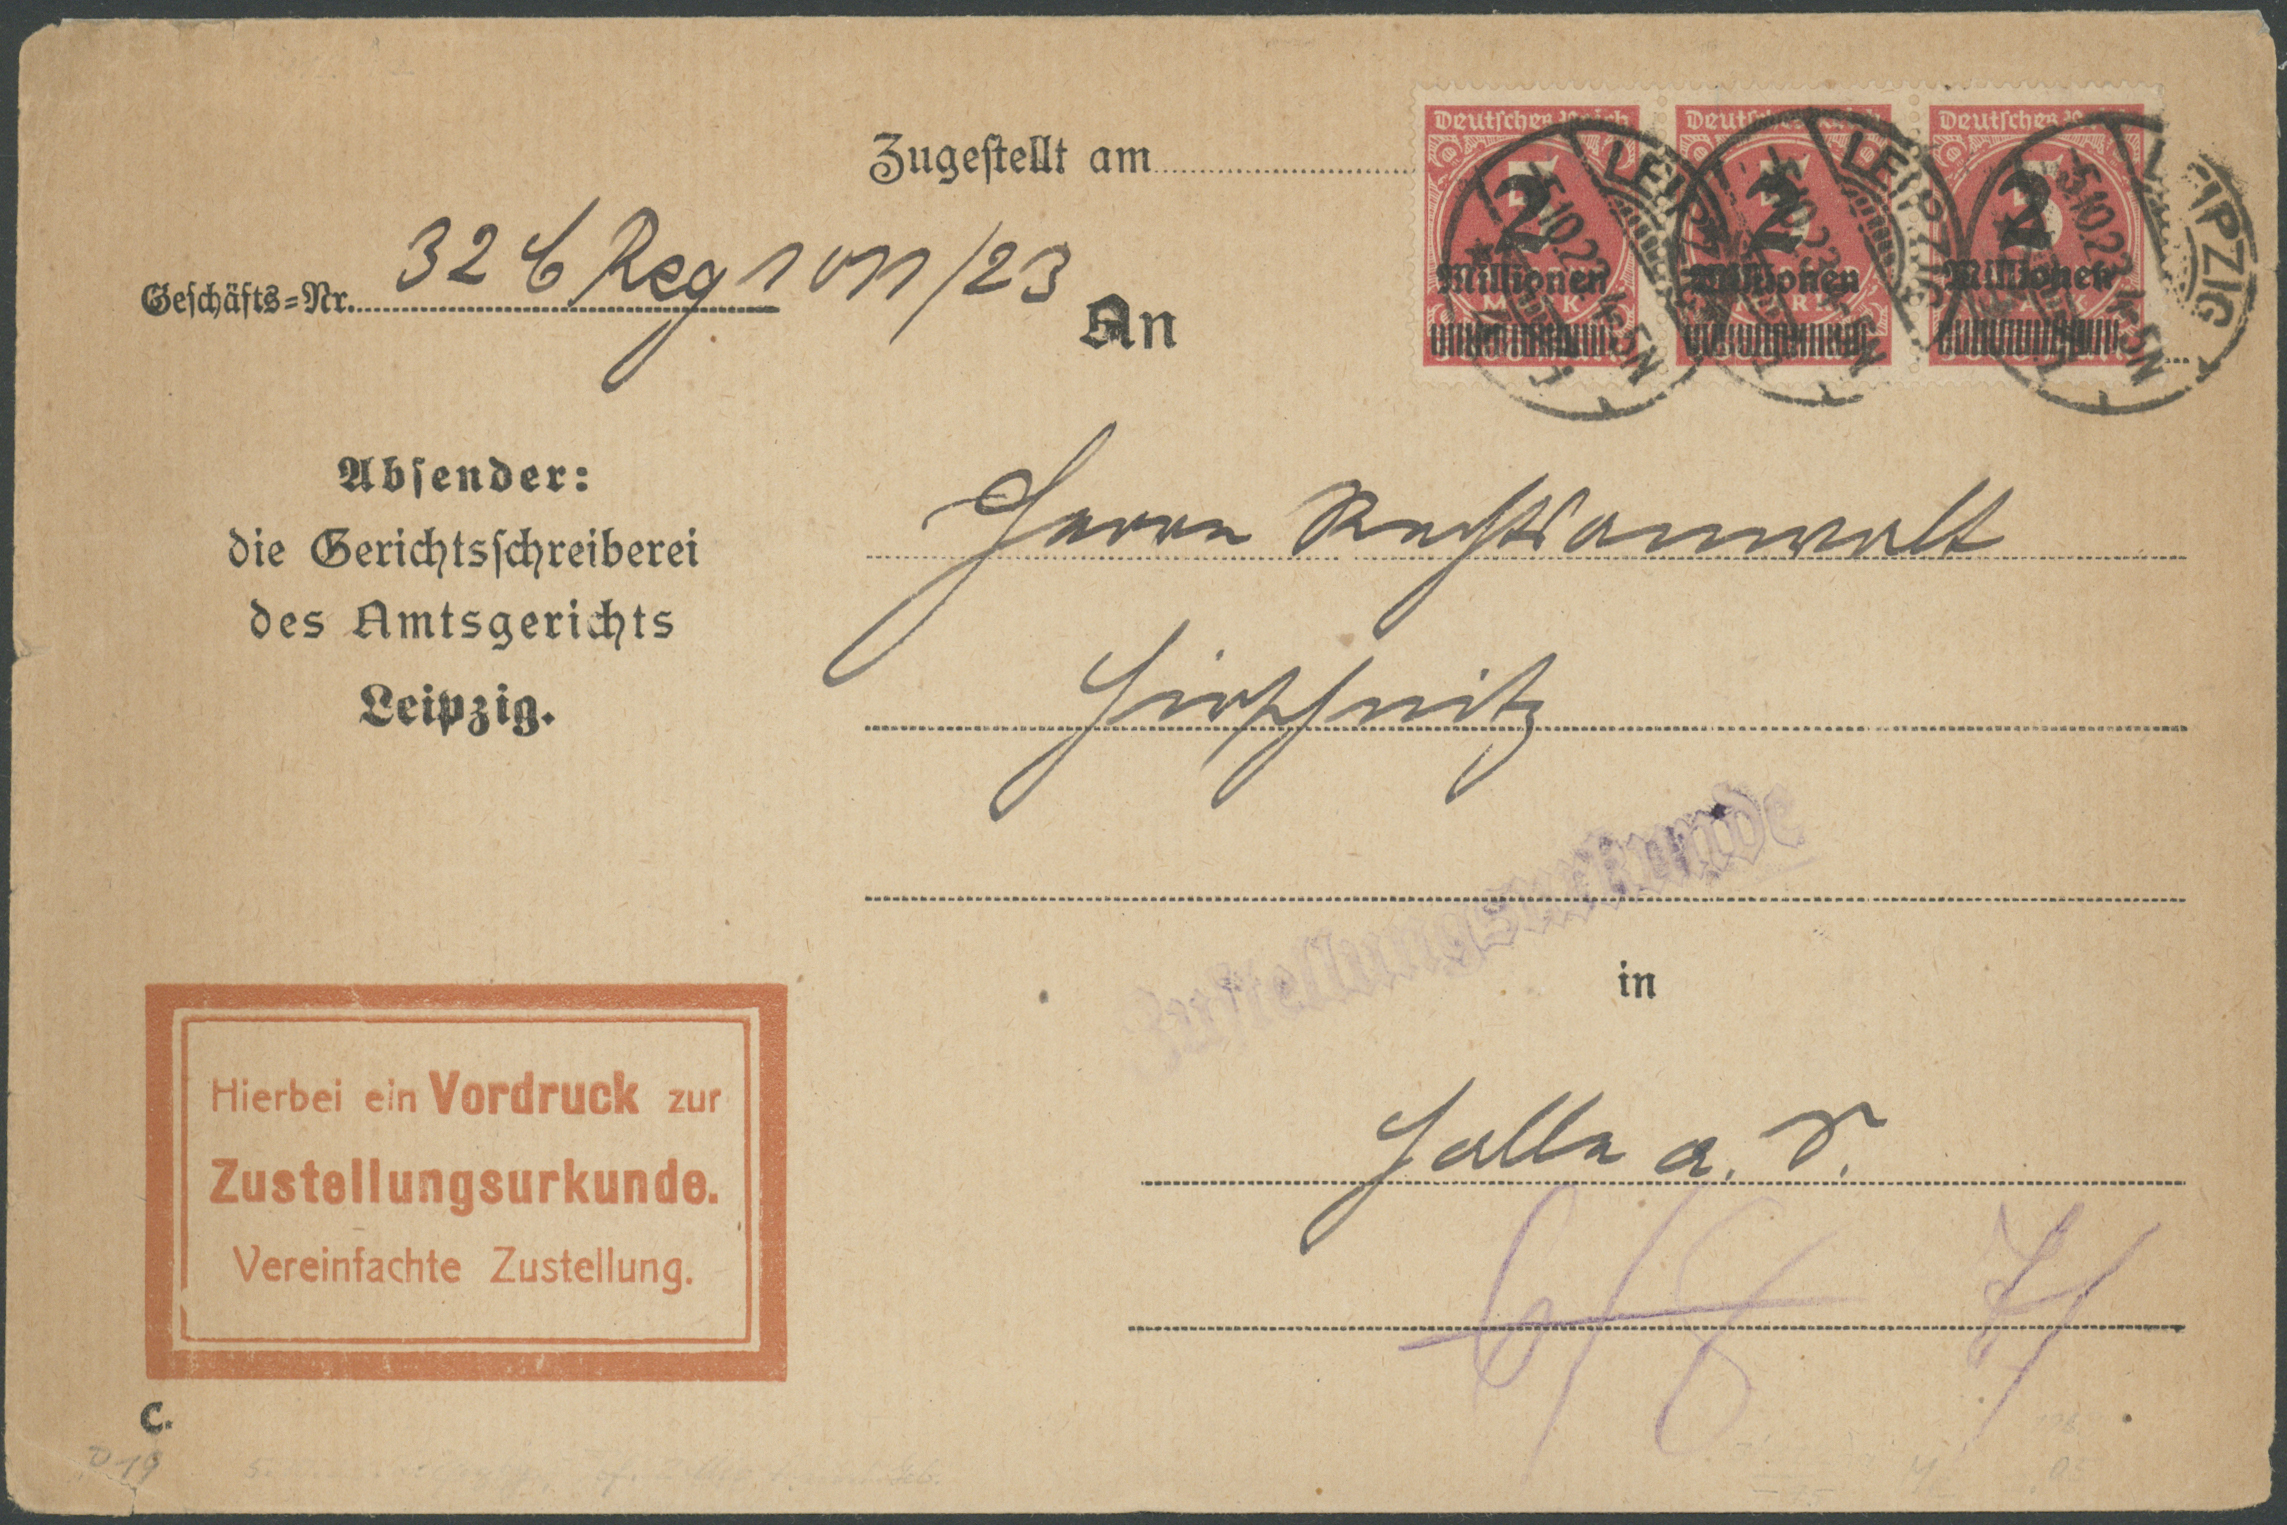 Zugestellt am
Deutsches Reich Deutsches Reich Deutsches
2 2 2
Millionen Millionen Millionen
MARK MARK MARK
LEIPZIG LEIPZIG LEIPZIG
5.10.23. 4-5N
Geschäfts=Nr. 32 C Reg /23
An
Absender:
die Gerichtsschreiberei
des Amtsgerichts
Leipzig.
Herrn Rechtsanwalt
Zustellungsurkunde
in
Halle a. S.
Hierbei ein Vordruck zur
Zustellungsurkunde.
Vereinfachte Zustellung.
C.